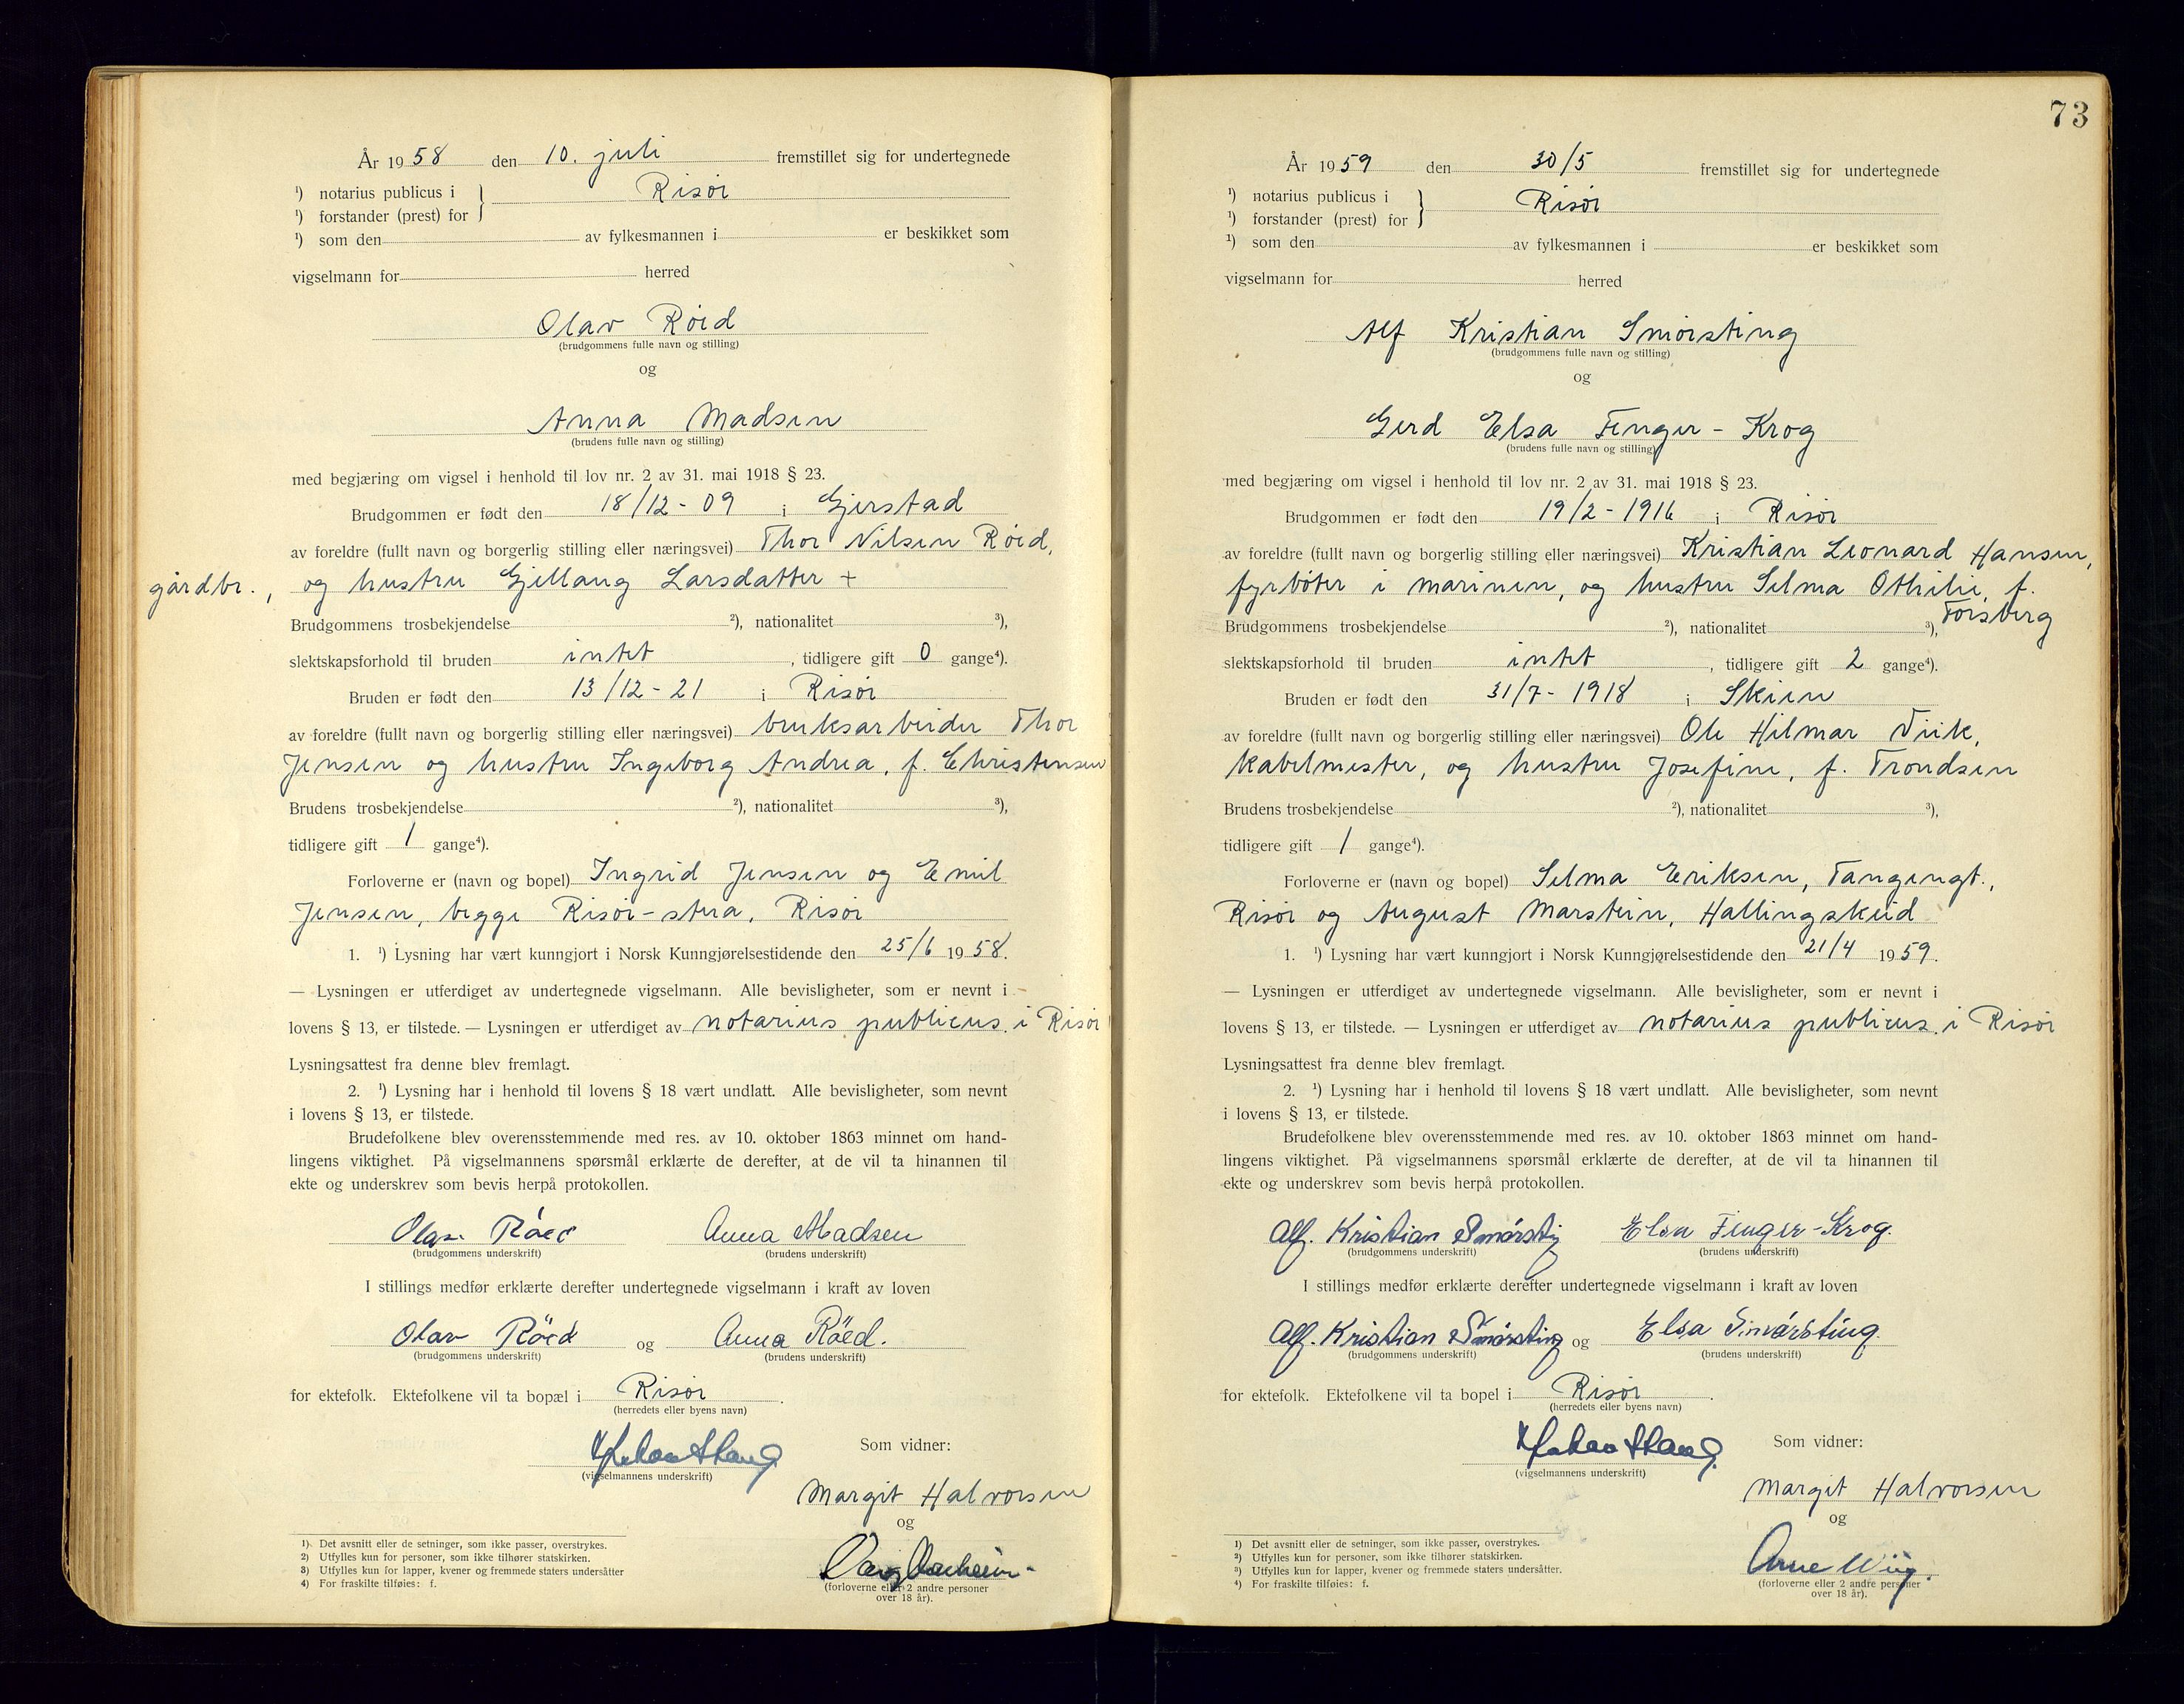 År 1958 den 10. juli fremstillet sig for undertegnede
¹) notarius publicus i } Risør
¹) forstander (prest) for
¹) som den av fylkesmannen i er beskikket som
vigselmann for herred
Olav Røed
(brudgommens fulle navn og stilling)
og
Anna Madsen
(brudens fulle navn og stilling)
med begjæring om vigsel i henhold til lov nr. 2 av 31. mai 1918 § 23.
Brudgommen er født den 18/12 - 09 i Gjerstad
av foreldre (fullt navn og borgerlig stilling eller næringsvei) Thor Nilsen Røed,
gårdbr., og hustru Gjellaug Larsdatter +
Brudgommens trosbekjendelse ²), nationalitet ³),
slektskapsforhold til bruden intet, tidligere gift 0 gange⁴).
Bruden er født den 13/12 - 21 i Risør
av foreldre (fullt navn og borgerlig stilling eller næringsvei) bruksarbeider Thor
Jensen og hustru Ingeborg Andrea, f. Christensen
Brudens trosbekjendelse ²), nationalitet ³),
tidligere gift 1 gange⁴).
Forloverne er (navn og bopel) Ingrid Jensen og Emil
Jensen, begge Risør-stera, Risør
1. ¹) Lysning har vært kunngjort i Norsk Kunngjørelsestidende den 25/6 1958.
— Lysningen er utferdiget av undertegnede vigselmann. Alle bevisligheter, som er nevnt i
lovens § 13, er tilstede. — Lysningen er utferdiget av notarius publicus. i Risør
Lysningsattest fra denne blev fremlagt.
2. ¹) Lysning har i henhold til lovens § 18 vært undlatt. Alle bevisligheter, som nevnt
i lovens § 13, er tilstede.
Brudefolkene blev overensstemmende med res. av 10. oktober 1863 minnet om hand-
lingens viktighet. På vigselmannens spørsmål erklærte de derefter, at de vil ta hinannen til
ekte og underskrev som bevis herpå protokollen.
Olav Röed Anna Madsen
(brudgommens underskrift) (brudens underskrift)
I stillings medfør erklærte derefter undertegnede vigselmann i kraft av loven
Olav Röed og Anna Röed.
(brudgommens underskrift) (brudens underskrift)
for ektefolk. Ektefolkene vil ta bopæl i Risør.
(herredets eller byens navn)
Som vidner:
(vigselmannens underskrift)
Margit Halvorsen
og
(forloverne eller 2 andre personer
over 18 år).
1) Det avsnitt eller de setninger, som ikke passer, overstrykes.
2) Utfylles kun for personer, som ikke tilhører statskirken.
3) Utfylles kun for lapper, kvener og fremmede staters undersåtter
4) For fraskilte tilføies: f.
73
År 1959 den 30/5 fremstillet sig for undertegnede
¹) notarius publicus i } Risør
¹) forstander (prest) for
¹) som den av fylkesmannen i er beskikket som
vigselmann for herred
Alf Kristian Smørsting
(brudgommens fulle navn og stilling)
og
Gerd Elsa Finger - Krog
(brudens fulle navn og stilling)
med begjæring om vigsel i henhold til lov nr. 2 av 31. mai 1918 § 23.
Brudgommen er født den 19/2 - 1916 i Risør
av foreldre (fullt navn og borgerlig stilling eller næringsvei) Kristian Leonard Hansen,
fyrbøter i marinen, og hustru Selma Othilie, f.
Forsberg
Brudgommens trosbekjendelse ²), nationalitet ³),
slektskapsforhold til bruden intet, tidligere gift 2 gange⁴).
Bruden er født den 31/7 - 1918 i Skien
av foreldre (fullt navn og borgerlig stilling eller næringsvei) Ole Hilmar Viik,
kabelmester, og hustru Josefine, f. Trondsen
Brudens trosbekjendelse ²), nationalitet ³),
tidligere gift 1 gange⁴).
Forloverne er (navn og bopel) Selma Eriksen, Tangengt.,
Risør og August Marstein, Hallingskeid
1. ¹) Lysning har vært kunngjort i Norsk Kunngjørelsestidende den 21/4 1959.
— Lysningen er utferdiget av undertegnede vigselmann. Alle bevisligheter, som er nevnt i
lovens § 13, er tilstede. — Lysningen er utferdiget av notarius publicus. i Risør
Lysningsattest fra denne blev fremlagt.
2. ¹) Lysning har i henhold til lovens § 18 vært undlatt. Alle bevisligheter, som nevnt
i lovens § 13, er tilstede.
Brudefolkene blev overensstemmende med res. av 10. oktober 1863 minnet om hand-
lingens viktighet. På vigselmannens spørsmål erklærte de derefter, at de vil ta hinannen til
ekte og underskrev som bevis herpå protokollen.
Alf. Kristian Smørsting Elsa Finger-Krog.
(brudgommens underskrift) (brudens underskrift)
I stillings medfør erklærte derefter undertegnede vigselmann i kraft av loven
Alf. Kristian Smørsting og Elsa Smørsting.
(brudgommens underskrift) (brudens underskrift)
for ektefolk. Ektefolkene vil ta bopel i Risør.
(herredets eller byens navn)
Som vidner:
(vigselmannens underskrift)
Margit Halvorsen
og
Arne Wiig.
(forloverne eller 2 andre personer
over 18 år).
1) Det avsnitt eller de setninger, som ikke passer, overstrykes.
2) Utfylles kun for personer, som ikke tilhører statskirken.
3) Utfylles kun for lapper, kvener og fremmede staters undersåtter.
4) For fraskilte tilføies: f.